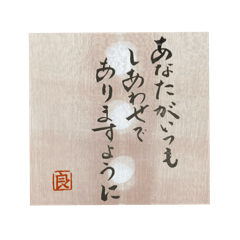 あなたがいつも
しあわせで
ありますように
良